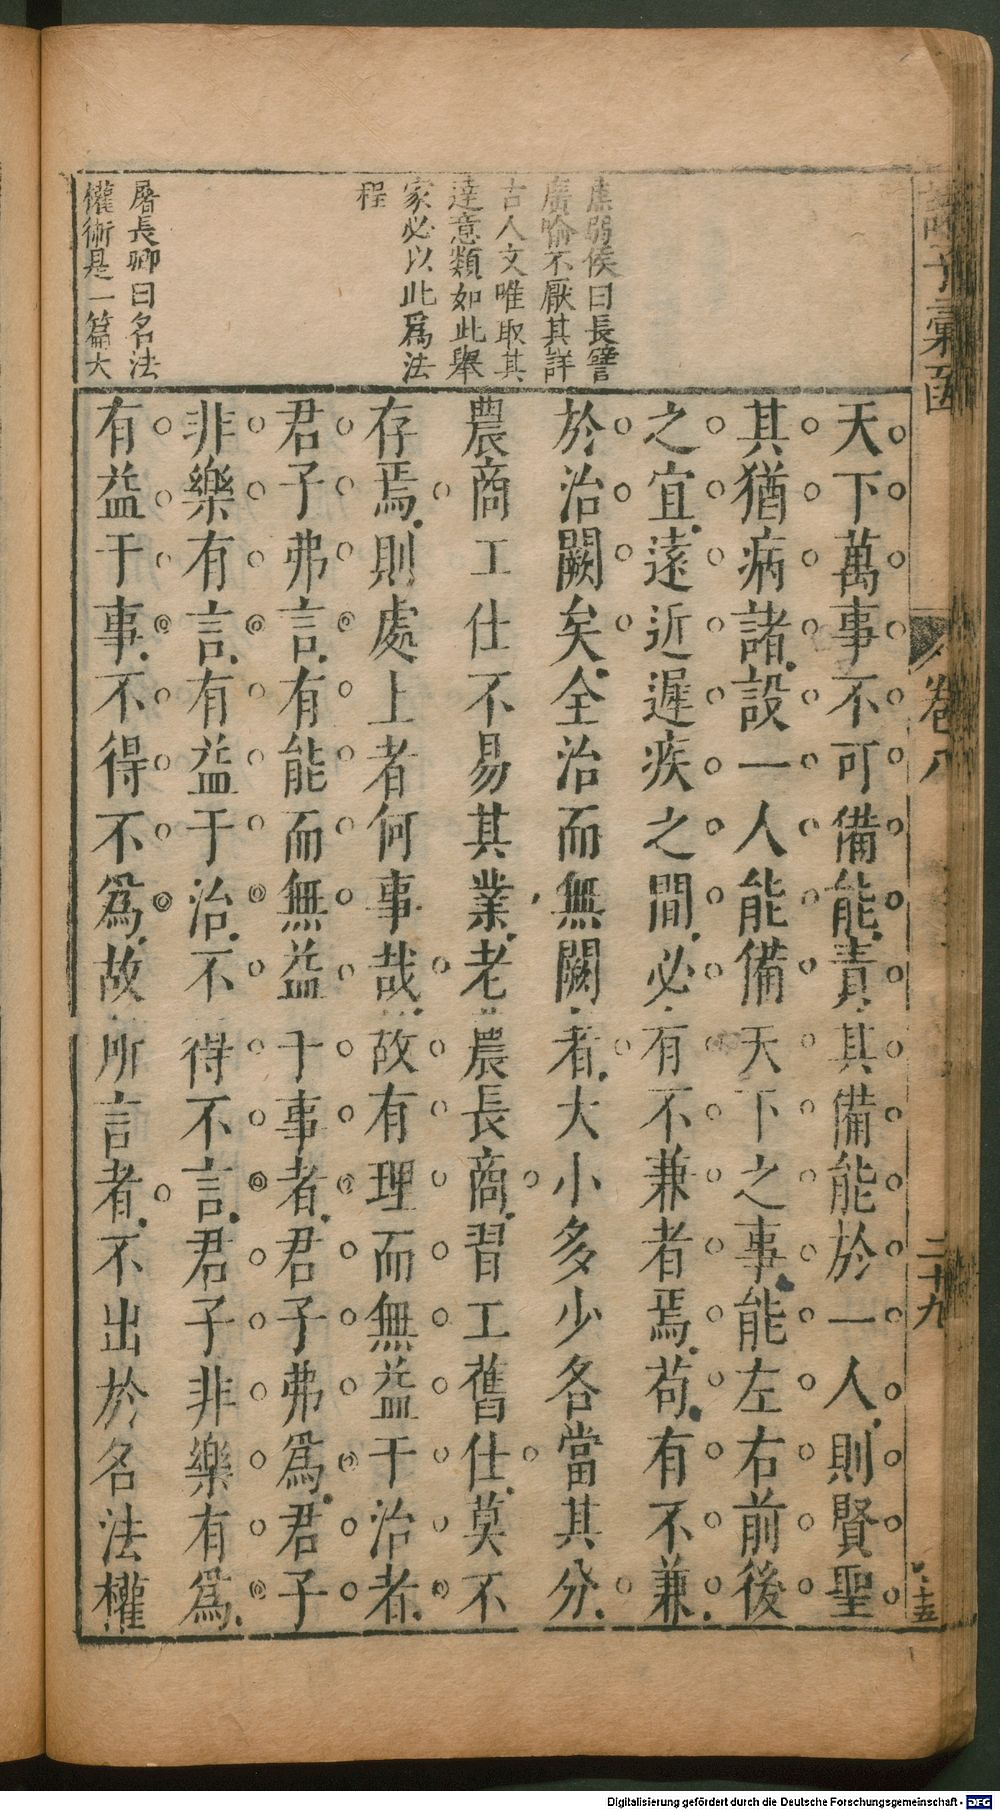 焦弱侯曰長譬
廣喻不厭其詳
古人文唯取其
達意類如此舉
家必以此爲法
程
屠長卿曰名法
權術是一篇大
天下萬事不可備能責其備能於一人則賢聖
其猶病諸設一人能備天下之事能左右前後
之宜遠近遲疾之間必有不兼者焉苟有不兼
於治闕矣全治而無闕者大小多少各當其分
農商工仕不易其業老農長商習工舊仕莫不
存焉則處上者何事哉故有理而無益于治者
君子弗言有能而無益于事者君子弗爲君子
非樂有言有益于治不得不言君子非樂有爲
有益于事不得不爲故所言者不出於名法權
子彙函
卷八
二十九
十五
Digitalisierung gefördert durch die Deutsche Forschungsgemeinschaft - DFG